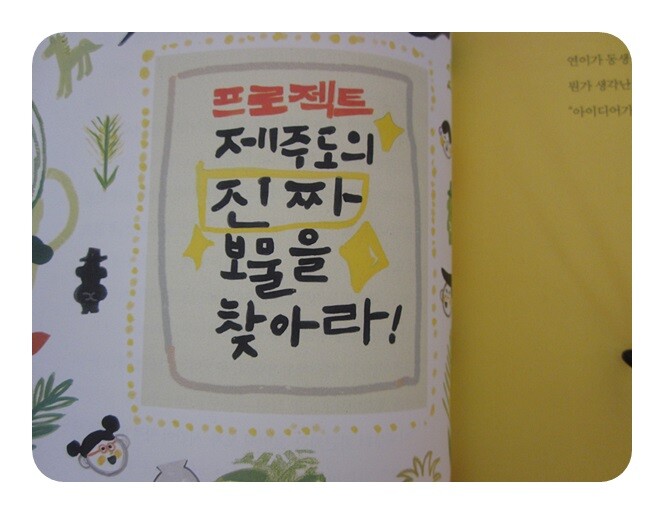 프로젝트
제주도의
진짜
보물을
찾아라!
연이가 동생
뭔가 생각난
"아이디어가